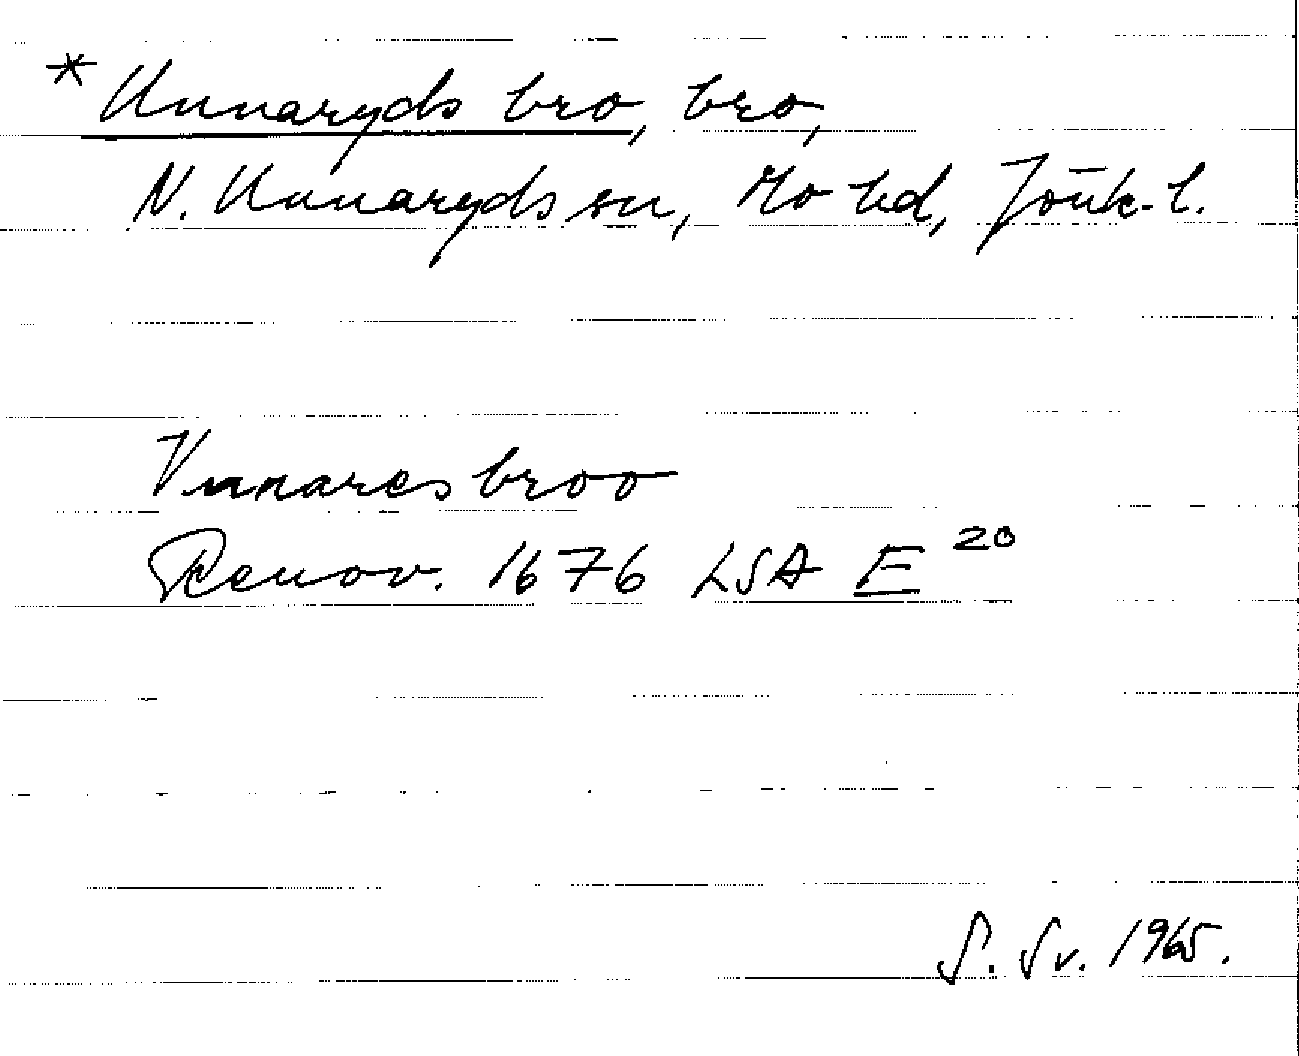 * Unnaryds bro, bro,
N. Unnaryds sn, Mo hd, Jönk. l.
Vnnares broo
Renov. 1676 LSA E 20
S. Sv. 1965.